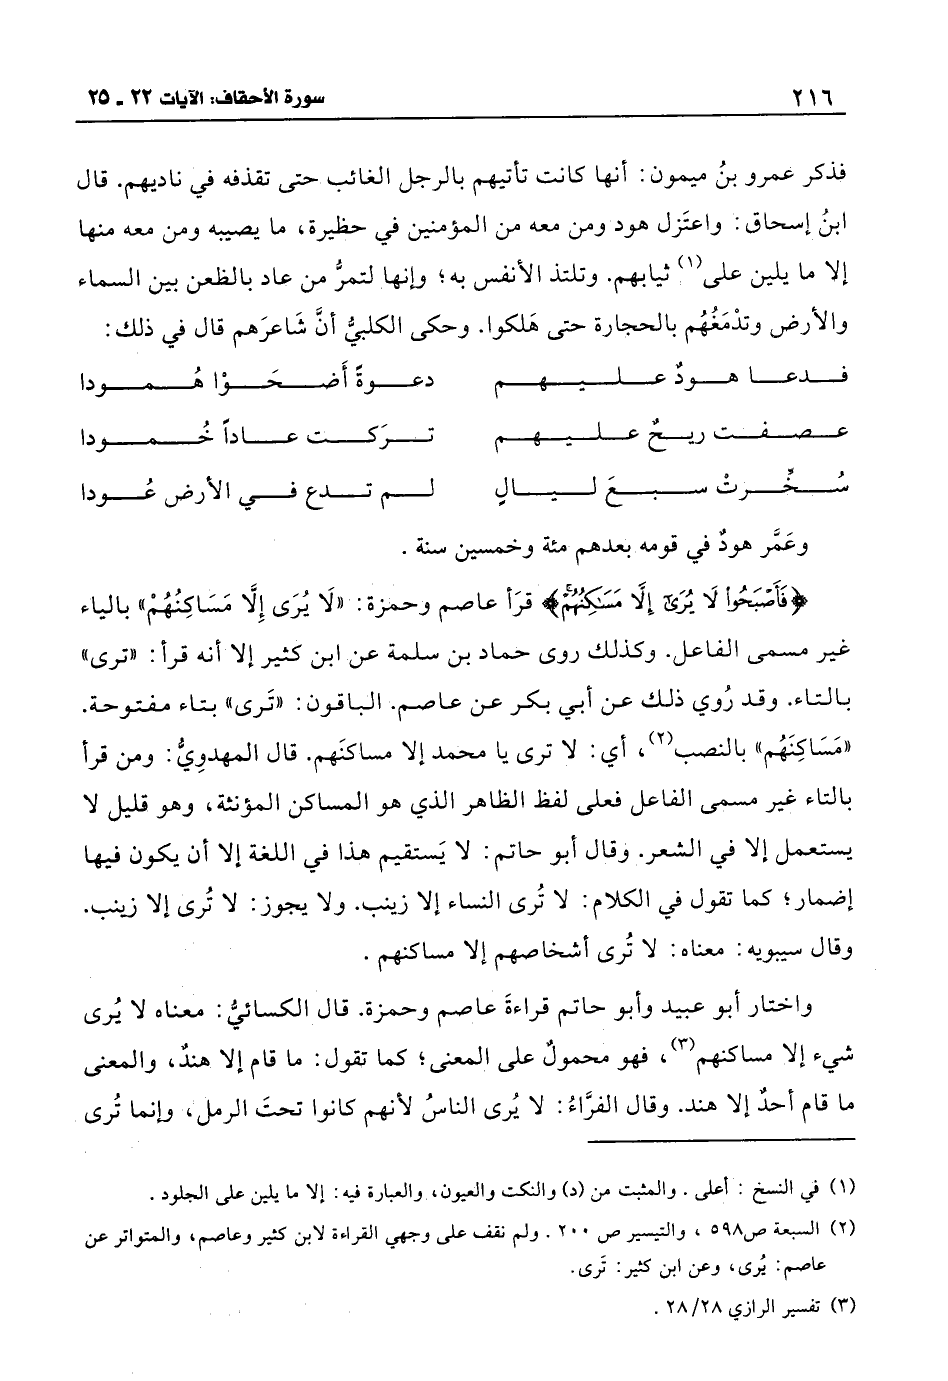 ٢١٦ سورة الأحقاف: الآيات ٢٢ ـ ٢٥
فذكر عمرو بنُ ميمون: أنها كانت تأتيهم بالرجل الغائب حتى تقذفه في ناديهم. قال
ابنُ إسحاق: واعتَزل هود ومن معه من المؤمنين في حظيرة، ما يصيبه ومن معه منها
إلا ما يلين على(١) ثيابهم. وتلتذ الأنفس به؛ وإنها لتمرُّ من عاد بالظعن بين السماء
والأرض وتدْمَغُهُم بالحجارة حتى هَلكوا. وحكى الكلبيُّ أنَّ شَاعرَهم قال في ذلك:
فـدعـا هـودٌ عـلـيـهـم دعـوةً أَضـحَـوْا هُـمـودا
عـصـفـت ريـحٌ عـلـيـهـم تـرَكـت عـاداً خُـمـودا
سُـخِّـرتْ سـبـعَ لـيـالٍ لـم تـدع فـي الأرض عُـودا
وعَمَّر هودٌ في قومه بعدهم مئة وخمسين سنة .
﴿فَأَصْبَحُواْ لَا يُرَىٰٓ إِلَّا مَسَٰكِنُهُمْۚ﴾ قرَأ عاصم وحمزة: «لَا يُرَى إِلَّا مَسَاكِنُهُمْ» بالياء
غير مسمى الفاعل. وكذلك روى حماد بن سلمة عن ابن كثير إلا أنه قرأ: «ترى»
بالتاء. وقد رُوي ذلك عن أبي بكر عن عاصم. الباقون: «تَرى» بتاء مفتوحة.
«مَسَاكِنَهُم» بالنصب(٢)، أي: لا ترى يا محمد إلا مساكنَهم. قال المهدويُّ: ومن قرأ
بالتاء غير مسمى الفاعل فعلى لفظ الظاهر الذي هو المساكن المؤنثة، وهو قليل لا
يستعمل إلا في الشعر. وقال أبو حاتم: لا يَستقيم هذا في اللغة إلا أن يكون فيها
إضمار؛ كما تقول في الكلام: لا تُرى النساء إلا زينب. ولا يجوز: لا تُرى إلا زينب.
وقال سيبويه: معناه: لا تُرى أشخاصهم إلا مساكنهم .
واختار أبو عبيد وأبو حاتم قراءةَ عاصم وحمزة. قال الكسائيُّ: معناه لا يُرى
شيء إلا مساكنهم(٣)، فهو محمولٌ على المعنى؛ كما تقول: ما قام إلا هندٌ، والمعنى
ما قام أحدٌ إلا هند. وقال الفرَّاءُ: لا يُرى الناسُ لأنهم كانوا تحتَ الرمل، وإنما تُرى
(١) في النسخ : أعلى . والمثبت من (د) والنكت والعيون، والعبارة فيه: إلا ما يلين على الجلود .
(٢) السبعة ص٥٩٨ ، والتيسير ص ٢٠٠ . ولم نقف على وجهي القراءة لابن كثير وعاصم، والمتواتر عن
عاصم: يُرى، وعن ابن كثير: تَرى.
(٣) تفسير الرازي ٢٨/٢٨ .